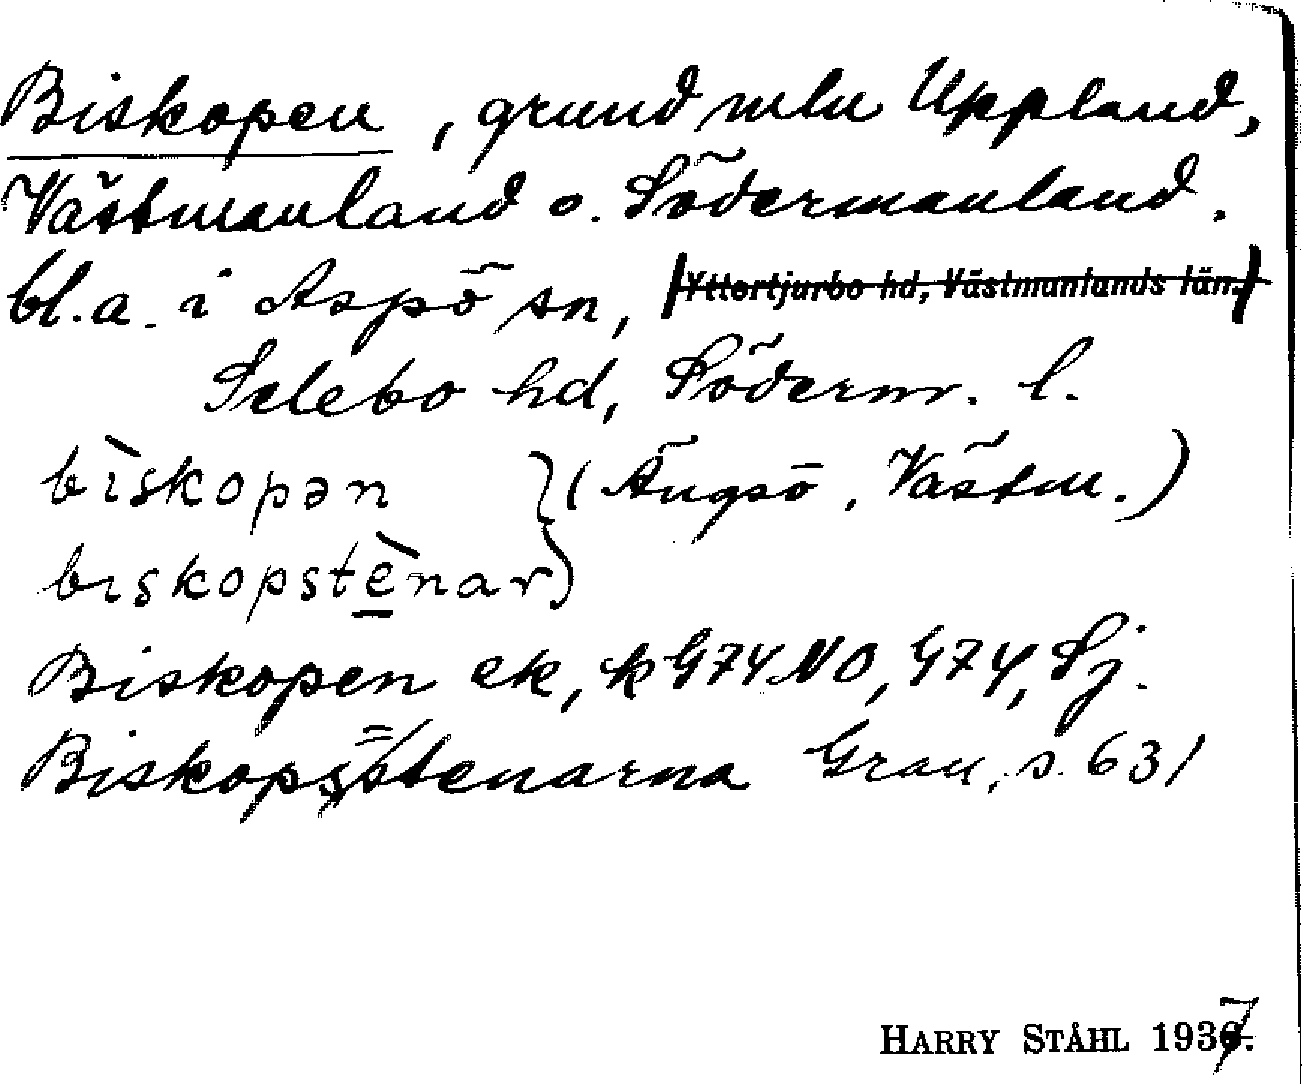 Biskopen, grund mln Uppland,
Västmanland o. Södermanland.
bl.a. i Aspö sn, Yttertjurbo hd, Västmanlands län.
Selebo hd, Söderm. l.
bìskopən } (Ängsö, Västm.)
bıskopstènar)
Biskopen ek, k G74 NO, G74, Sj.
Biskopsstenarna Grau, s. 631
HARRY STÅHL 1937.